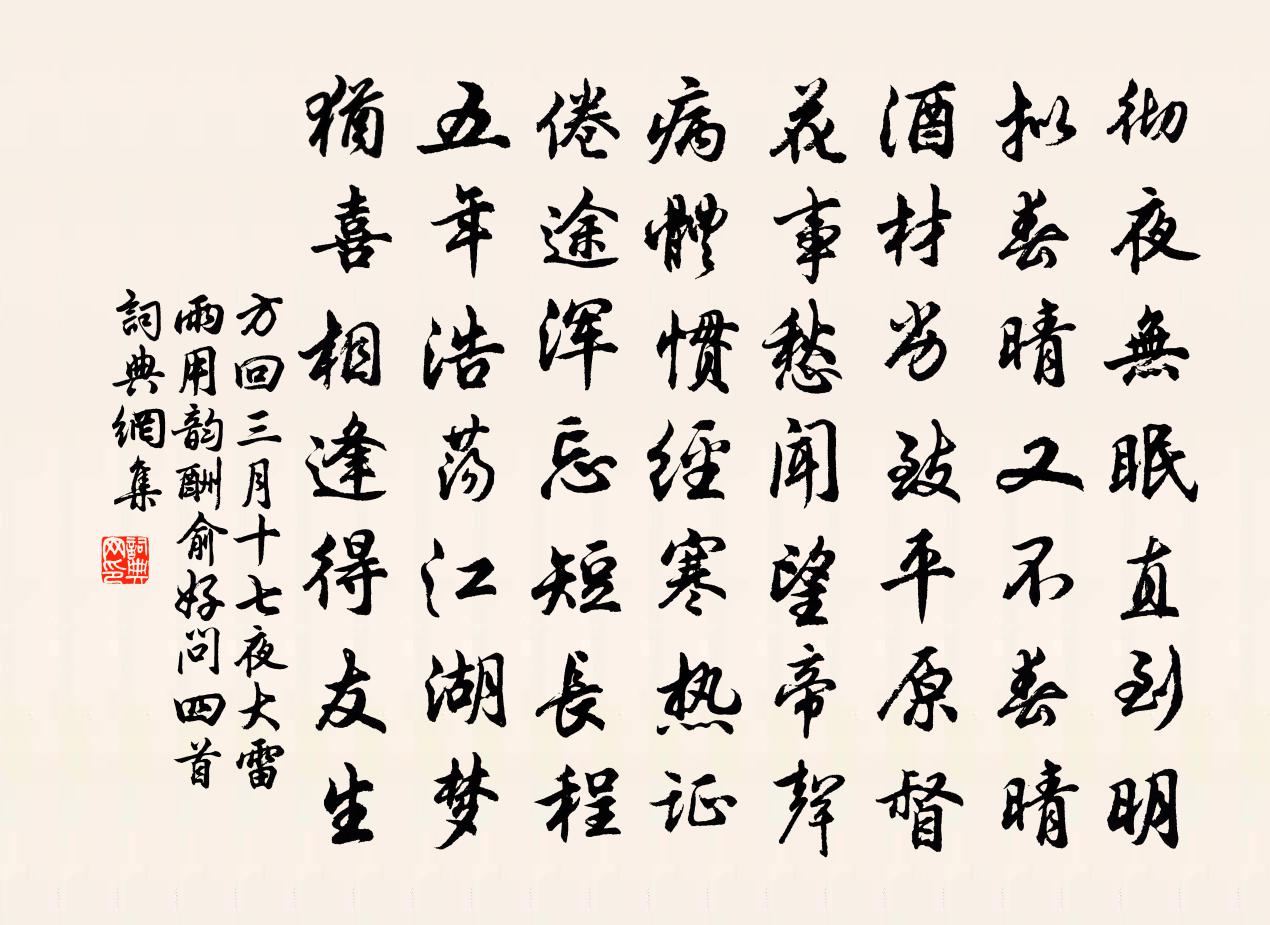 彻夜無眠直到明
拟春晴又不春晴
酒材劣致平原督
花事愁闻望帝聲
病體惯經寒热证
倦途浑忘短長程
五年浩荡江湖梦
猶喜相逢得友生
方回三月十七夜大雷
雨用韵酬俞好问四首
詞典網集
詞典网印